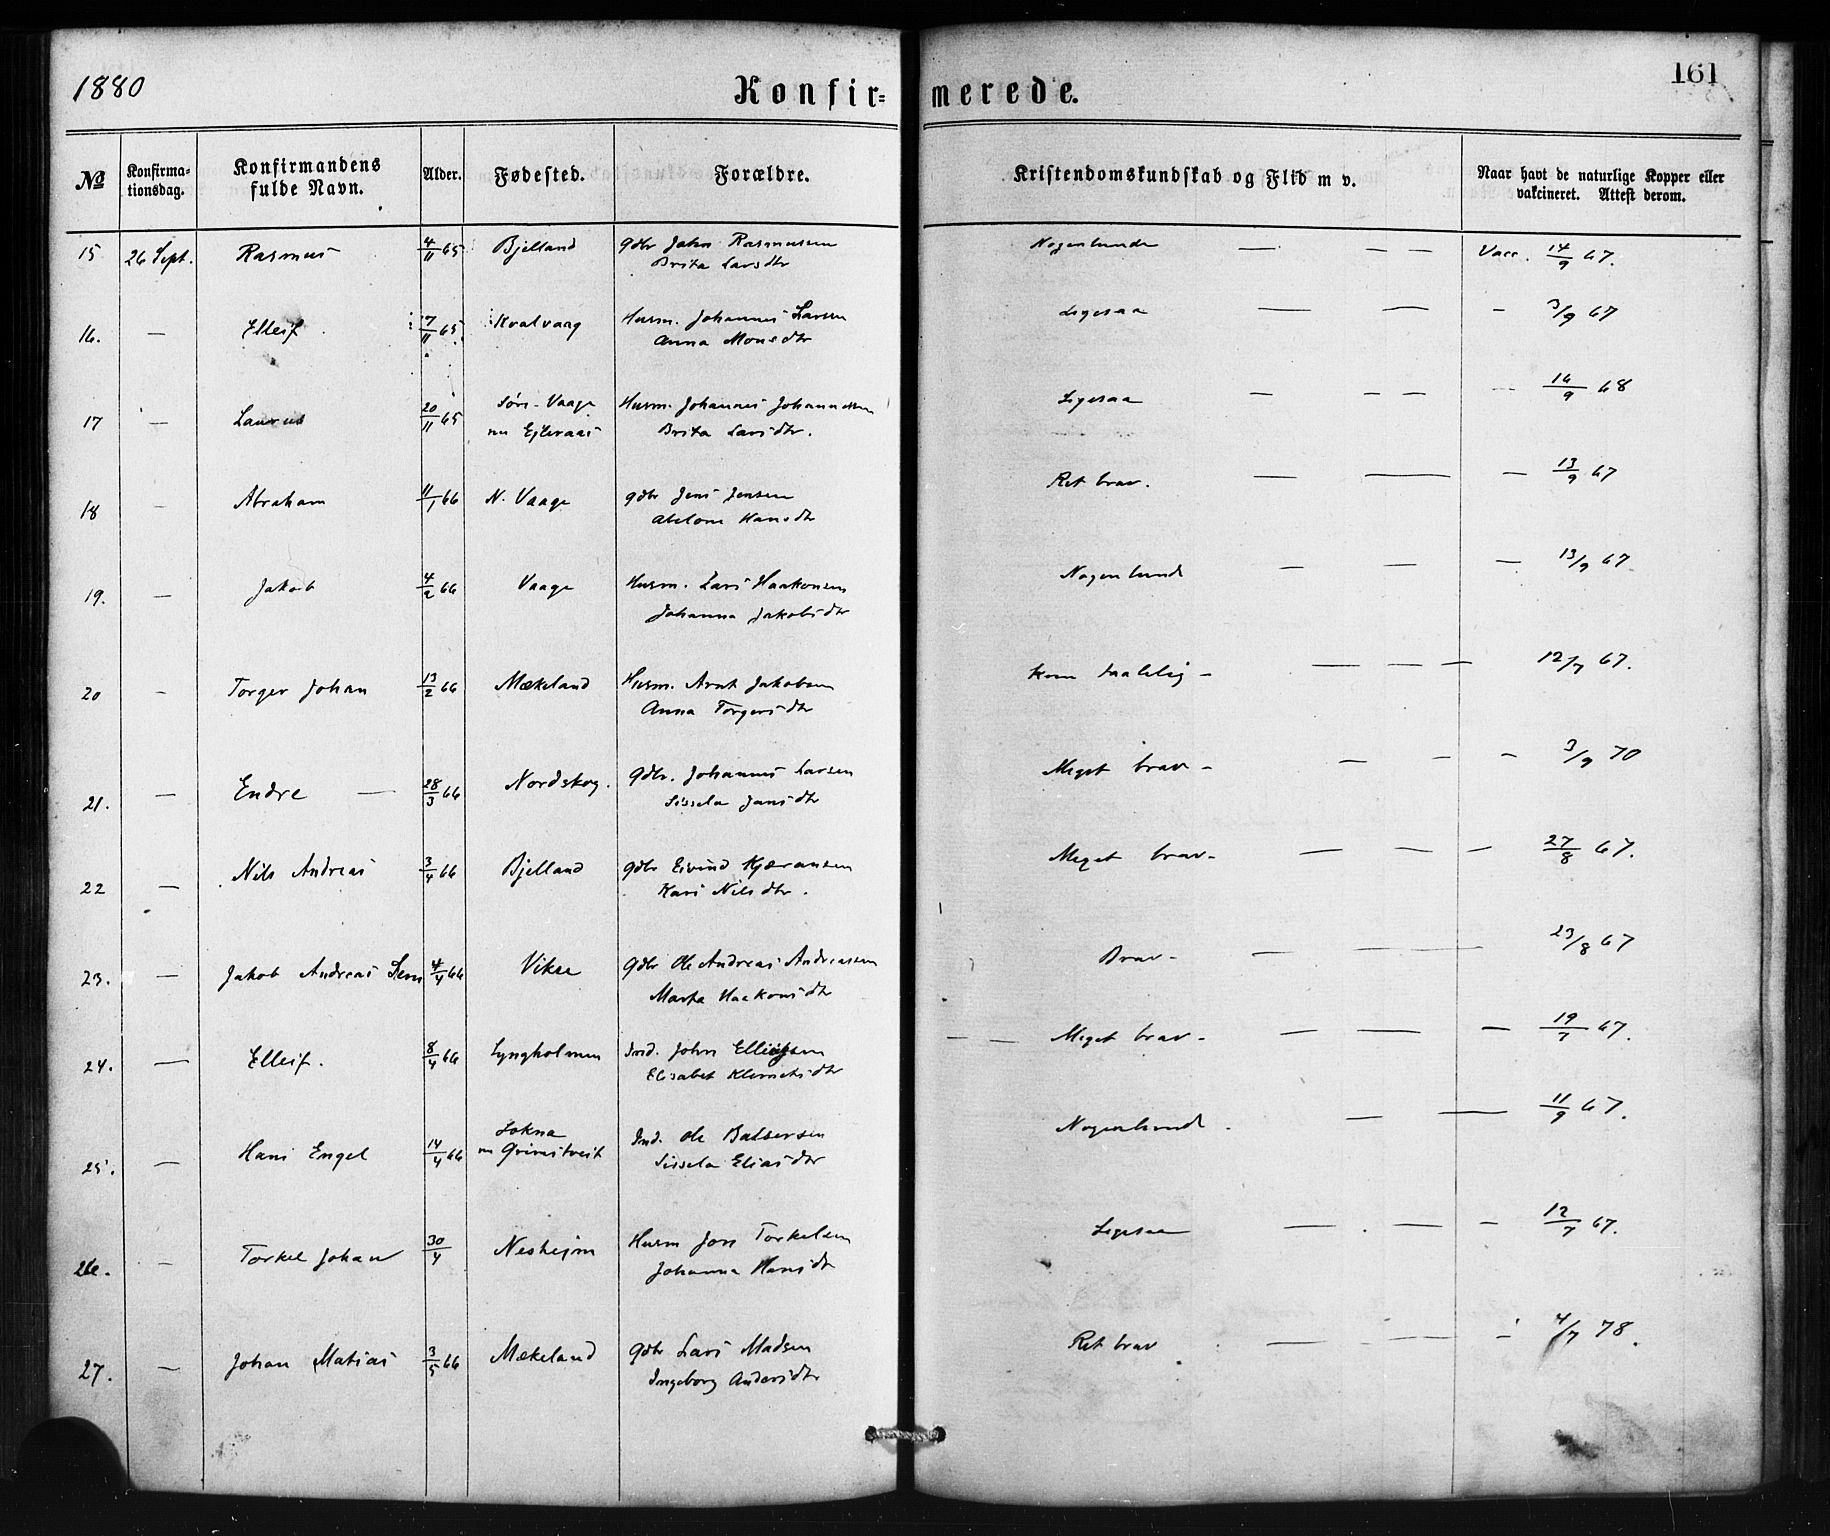 1880
Konfir=
merede.
161
No
Konfirma-
tionsdag.
Konfirmandens
fulde Navn.
Alder.
Fødested.
Forældre.
Kristendomskundskab og Flid m v.
Naar havt de naturlige Kopper eller
vakcineret. Attest derom.
15 26 Sept. Rasmus 4/11 65 Bjelland Gdbr John Rasmussen Nogenlunde — — Vacc. 14/9 67.
Brita Larsdtr
16. — Elleif 17/11 65 Kvalvaag Husm. Johannes Larsen Ligesaa — — - 3/9 67
Anna Monsdtr
17 — Laurus 20/11 65 Søre-Vaage Husm. Johannes Johannesen Ligesaa — — — 16/9 68
nu Brita Larsdtr.
18 - Abraham 11/1 66 N. Vaage Gdbr Jens Jensen Ret brav. — — — 13/9 67
Abelone Hansdtr
19. — Jakob 4/2 66 Vaage Husm. Lars Haakonsen Nogenlunde — — — 13/9 67
Johanna Jakobsdtr
20 - Torger Johan 13/2 66 Mækeland Husm. Arnt Jakobsen Kun taalelig - — — — — 12/7 67.
Anna Torgersdtr
21. — Endre — 28/3 66 Nordskog. Gdbr. Johannes Larsen Meget brav - — — - 3/9 70
Sissela Jansdtr
22 — Nils Andreas 3/4 66 Bjelland Gdbr Eivind Kjæransen Meget brav- — — — 27/8 67.
Kari Nilsdtr.
23. — Jakob Andreas Sem 4/4 66 Vikse Gdbr Ole Andreas Andreasen Brav - — — 23/8 67
Marta Haakonsdtr
24. — Elleif. 8/4 66 Lyngholmen Ind. John Elliefsen — — Meget brav - — — — 19/7 67.
Elisabet Klemetsdtr
25. — Hans Engel 14/4 66 Lokna Ind. Ole Baltsersen Nogenlunde. — — 11/9 67.
nu Grimstveit Sissela Eliasdtr
26. - Torkel Johan 30/4 Nesheim Husm Jon Torkelsen Ligesaa — — — 12/7 67.
Johanna Hansdtr
27. — Johan Matias 3/5 66 Mækeland Gdbr Lars Madsen Ret brav — — - 4/7 78.
Ingeborg Andersdtr